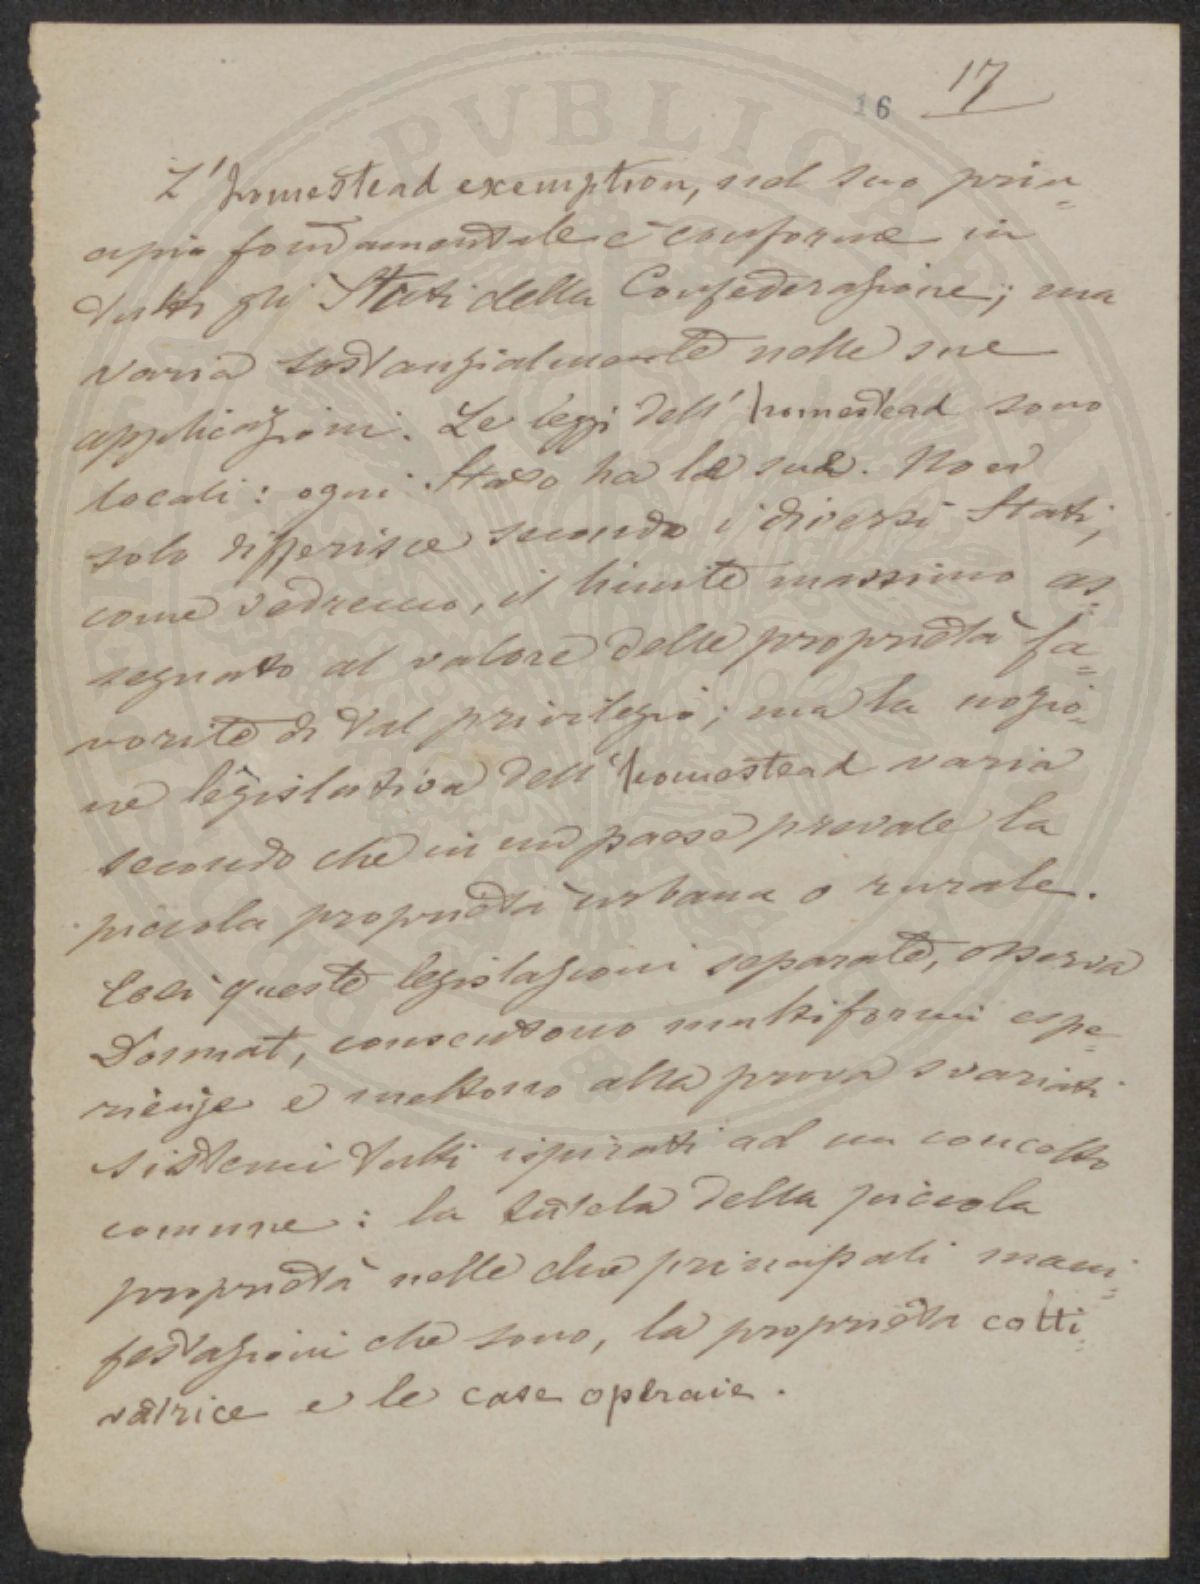 16 17
L'homestead exemption, nel suo prin=
cipio fondamentale è conforme in
tutti gli Stati della Confederazione; ma
varia sostanzialmente nelle sue
applicazioni. Le leggi dell'homestead sono
locali: ogni Stato ha le sue. Non
solo differisce secondo i diversi Stati,
come vedremo, il limite massimo as=
segnato al valore delle proprietà fa=
vorite di tal privilegio; ma la nozio=
ne legislativa dell'homestead varia
secondo che in un paese prevale la
piccola proprietà urbana o rurale.
Così queste legislazioni separate, osserva
Donnat, consentono multiformi espe=
rienze e mettono alla prova svariati
sistemi tutti ispirati ad un concetto
comune: la tutela della piccola
proprietà nelle due principali mani=
festazioni che sono, la proprietà colti=
vatrice e le case operaie.
PVBLICAE